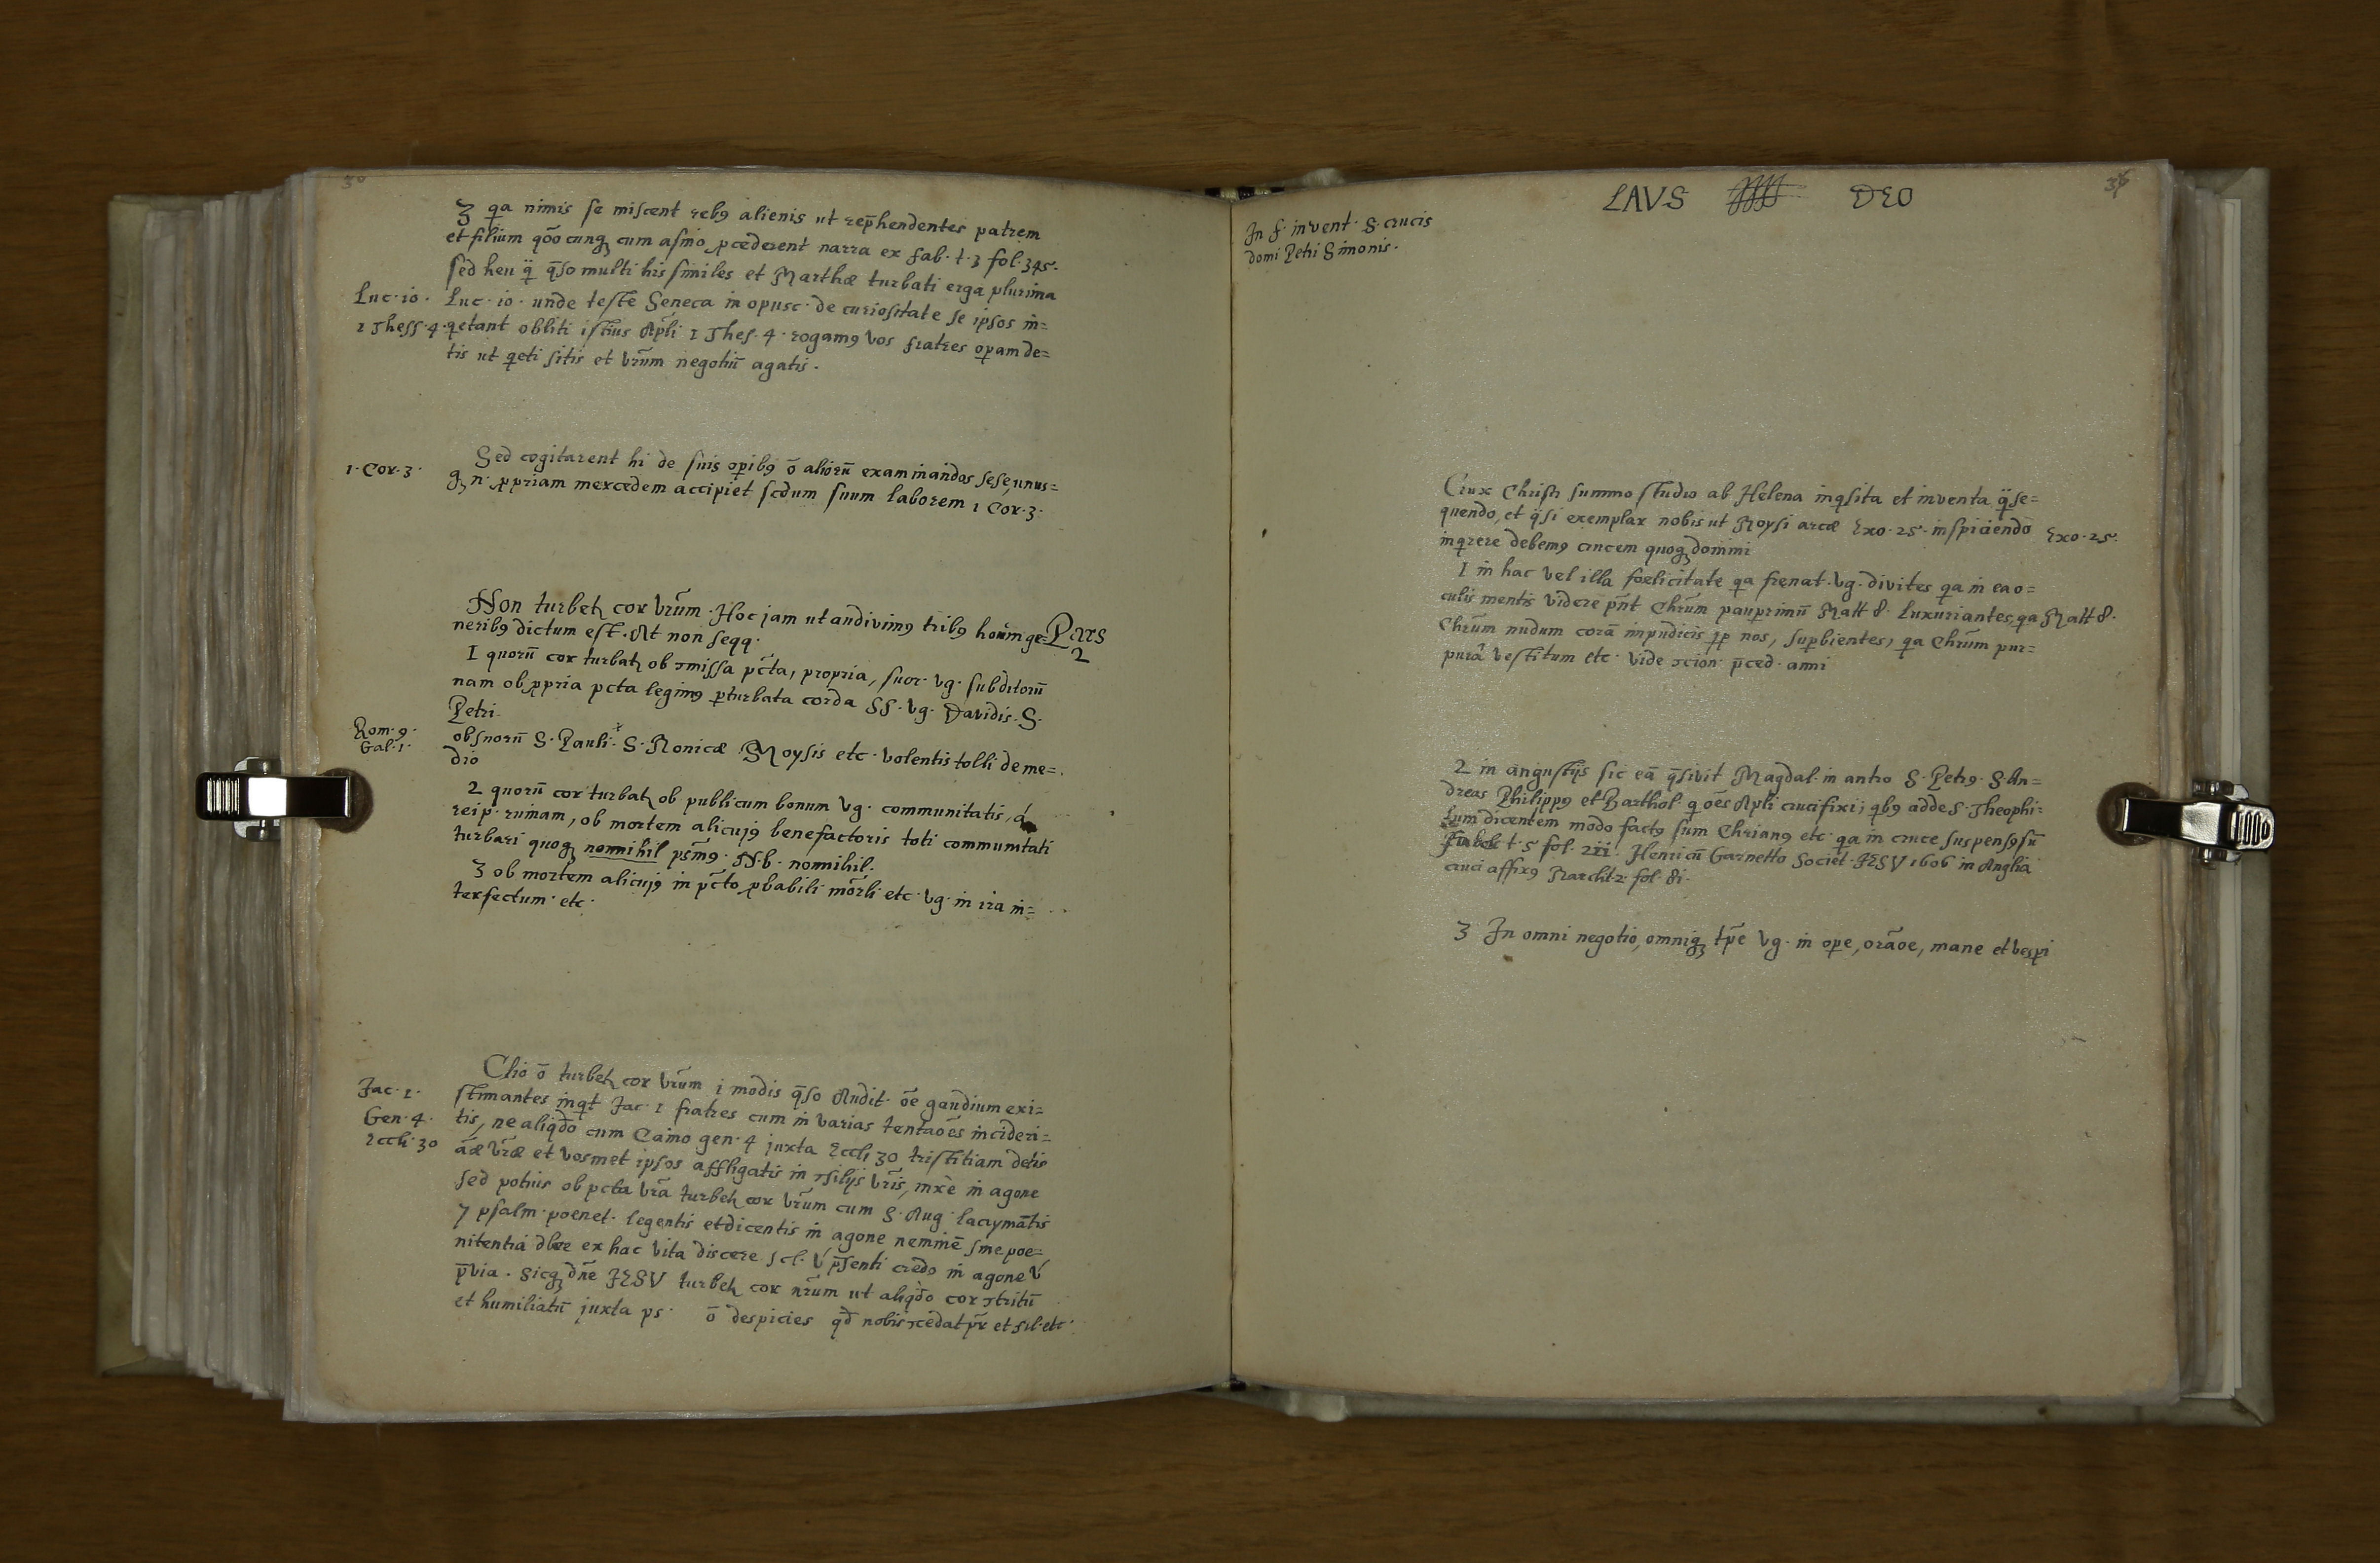 30
3 qa nimis se miscent rebꝰ alienis ut rep̄hendentes patrem
et filium qōo cunqꝫ cum asino ꝓcederent narra ex fab. t. 3 fol. 345.
sed heu q̈ q̄so multi his similes et Marthæ turbati erga plurima
Luc. 10. Luc. 10. unde teste Seneca in opusc. de curiositate se ipsos in=
1 Thess. 4. qetant obliti istius Apl̄i 1 Thes. 4. rogamꝰ vos fratres oꝑam de=
tis ut qeti sitis et vr̄um negotiū agatis.
Sed cogitarent hi de suis oꝑibꝰ ō aliorū examinandos sese, unus=
1. Cor. 3. qꝫ n. ꝓpriam mercedem accipiet scdum suum laborem 1 Cor. 3.
Non turbetꝫ cor vr̄um. Hoc jam ut audivimꝰ tribꝰ homin. ge= Pars
neribꝰ dictum est. At non seqq. 2
1 quorū cor turbatꝫ ob ɔmissa pc̄ta, propria, suor. vg. subditorū
nam ob ꝓpria pcta legimꝰ ꝑturbata corda SS. vg. Davidis. S.
Petri.
Rom. 9. ob suorū S. Pauli. S. Monicæ Moysis etc. volentis tolli de me=
Gal. 1. dio
2 quorū cor turbatꝫ ob publicum bonum vg. communitatis,
reip. ruinam, ob mortem alicujꝰ benefactoris toti communitati
turbari quoqꝫ nonnihil psm̄ꝰ. Nb. nonnihil.
3 ob mortem alicujꝰ in pc̄to ꝓbabili mōrli etc. vg. in ira in=
terfectum. etc.
Clio ō turbetꝫ cor vr̄um i modis q̄so Audit. ōe gaudium exi=
Jac. 1. stimantes inqt Jac. 1 fratres cum in varias tentaōes incideri=
Gen. 4. tis, ne aliqdō cum Caino gen. 4 juxta Eccli 30 tristitiam detis
Eccli. 30 āæ vr̄æ et vosmet ipsos affligatis in ɔsilijs vr̄is, mxe in agone
sed potius ob pcta vr̄a turbetꝫ cor vr̄um cum S. Aug. lacrymātis
7 psalm. poenet. legentis et dicentis in agone neminē sine poe=
nitentiā dbere ex hac vita discere scl. v́ p̄senti credo in agone v́
p̄via. Sicqꝫ dn̄e JESV turbetꝫ cor nr̄um ut aliqdō cor ɔtritū
et humiliatū juxta ps. ō despicies qd̄ nobis ɔcedat pr̄ et fil. etc.
LAVS DEO
In f. invent. S. crucis
domi Petri Simonis.
Crux Christi summo studio ab Helena inqsita et inventa q̈ se=
quendo, et q̈si exemplar nobis ut Moysi arcæ Exo. 25. inspiciendo Exo. 25.
inqrere debemꝰ crucem quoqꝫ domini
1 in hac vel illa foelicitate qa frenat. vg. divites qa in ea o=
culis mentis videre pn̄t Chr̄um pauprimū Matt 8. Luxuriantes, qa Matt 8.
Chr̄um nudum corā impudicis ꝓp nos, suꝑbientes, qa Chr̄um pur=
purā vestitum etc. vide ɔcion. p̄ced. anni
2 in angustijs sic eā q̄sivit Magdal. in antro S. Petrꝰ. S. An=
dreas Philippꝰ et Barthol. q ōes Apl̄i crucifixi; qbꝰ adde S. Theophi=
lum dicentem modo factꝰ sum Chrianꝰ etc. qa in cruce suspensꝰ sū
t. 5 fol. 211. Henricū Garnetto Societ. JESV 1606 in Anglia
cruci affixꝰ March t. 2 fol. 81.
3 In omni negotio, omniqꝫ tp̄e vg. in oꝑe, orāoe, mane et vesꝑi